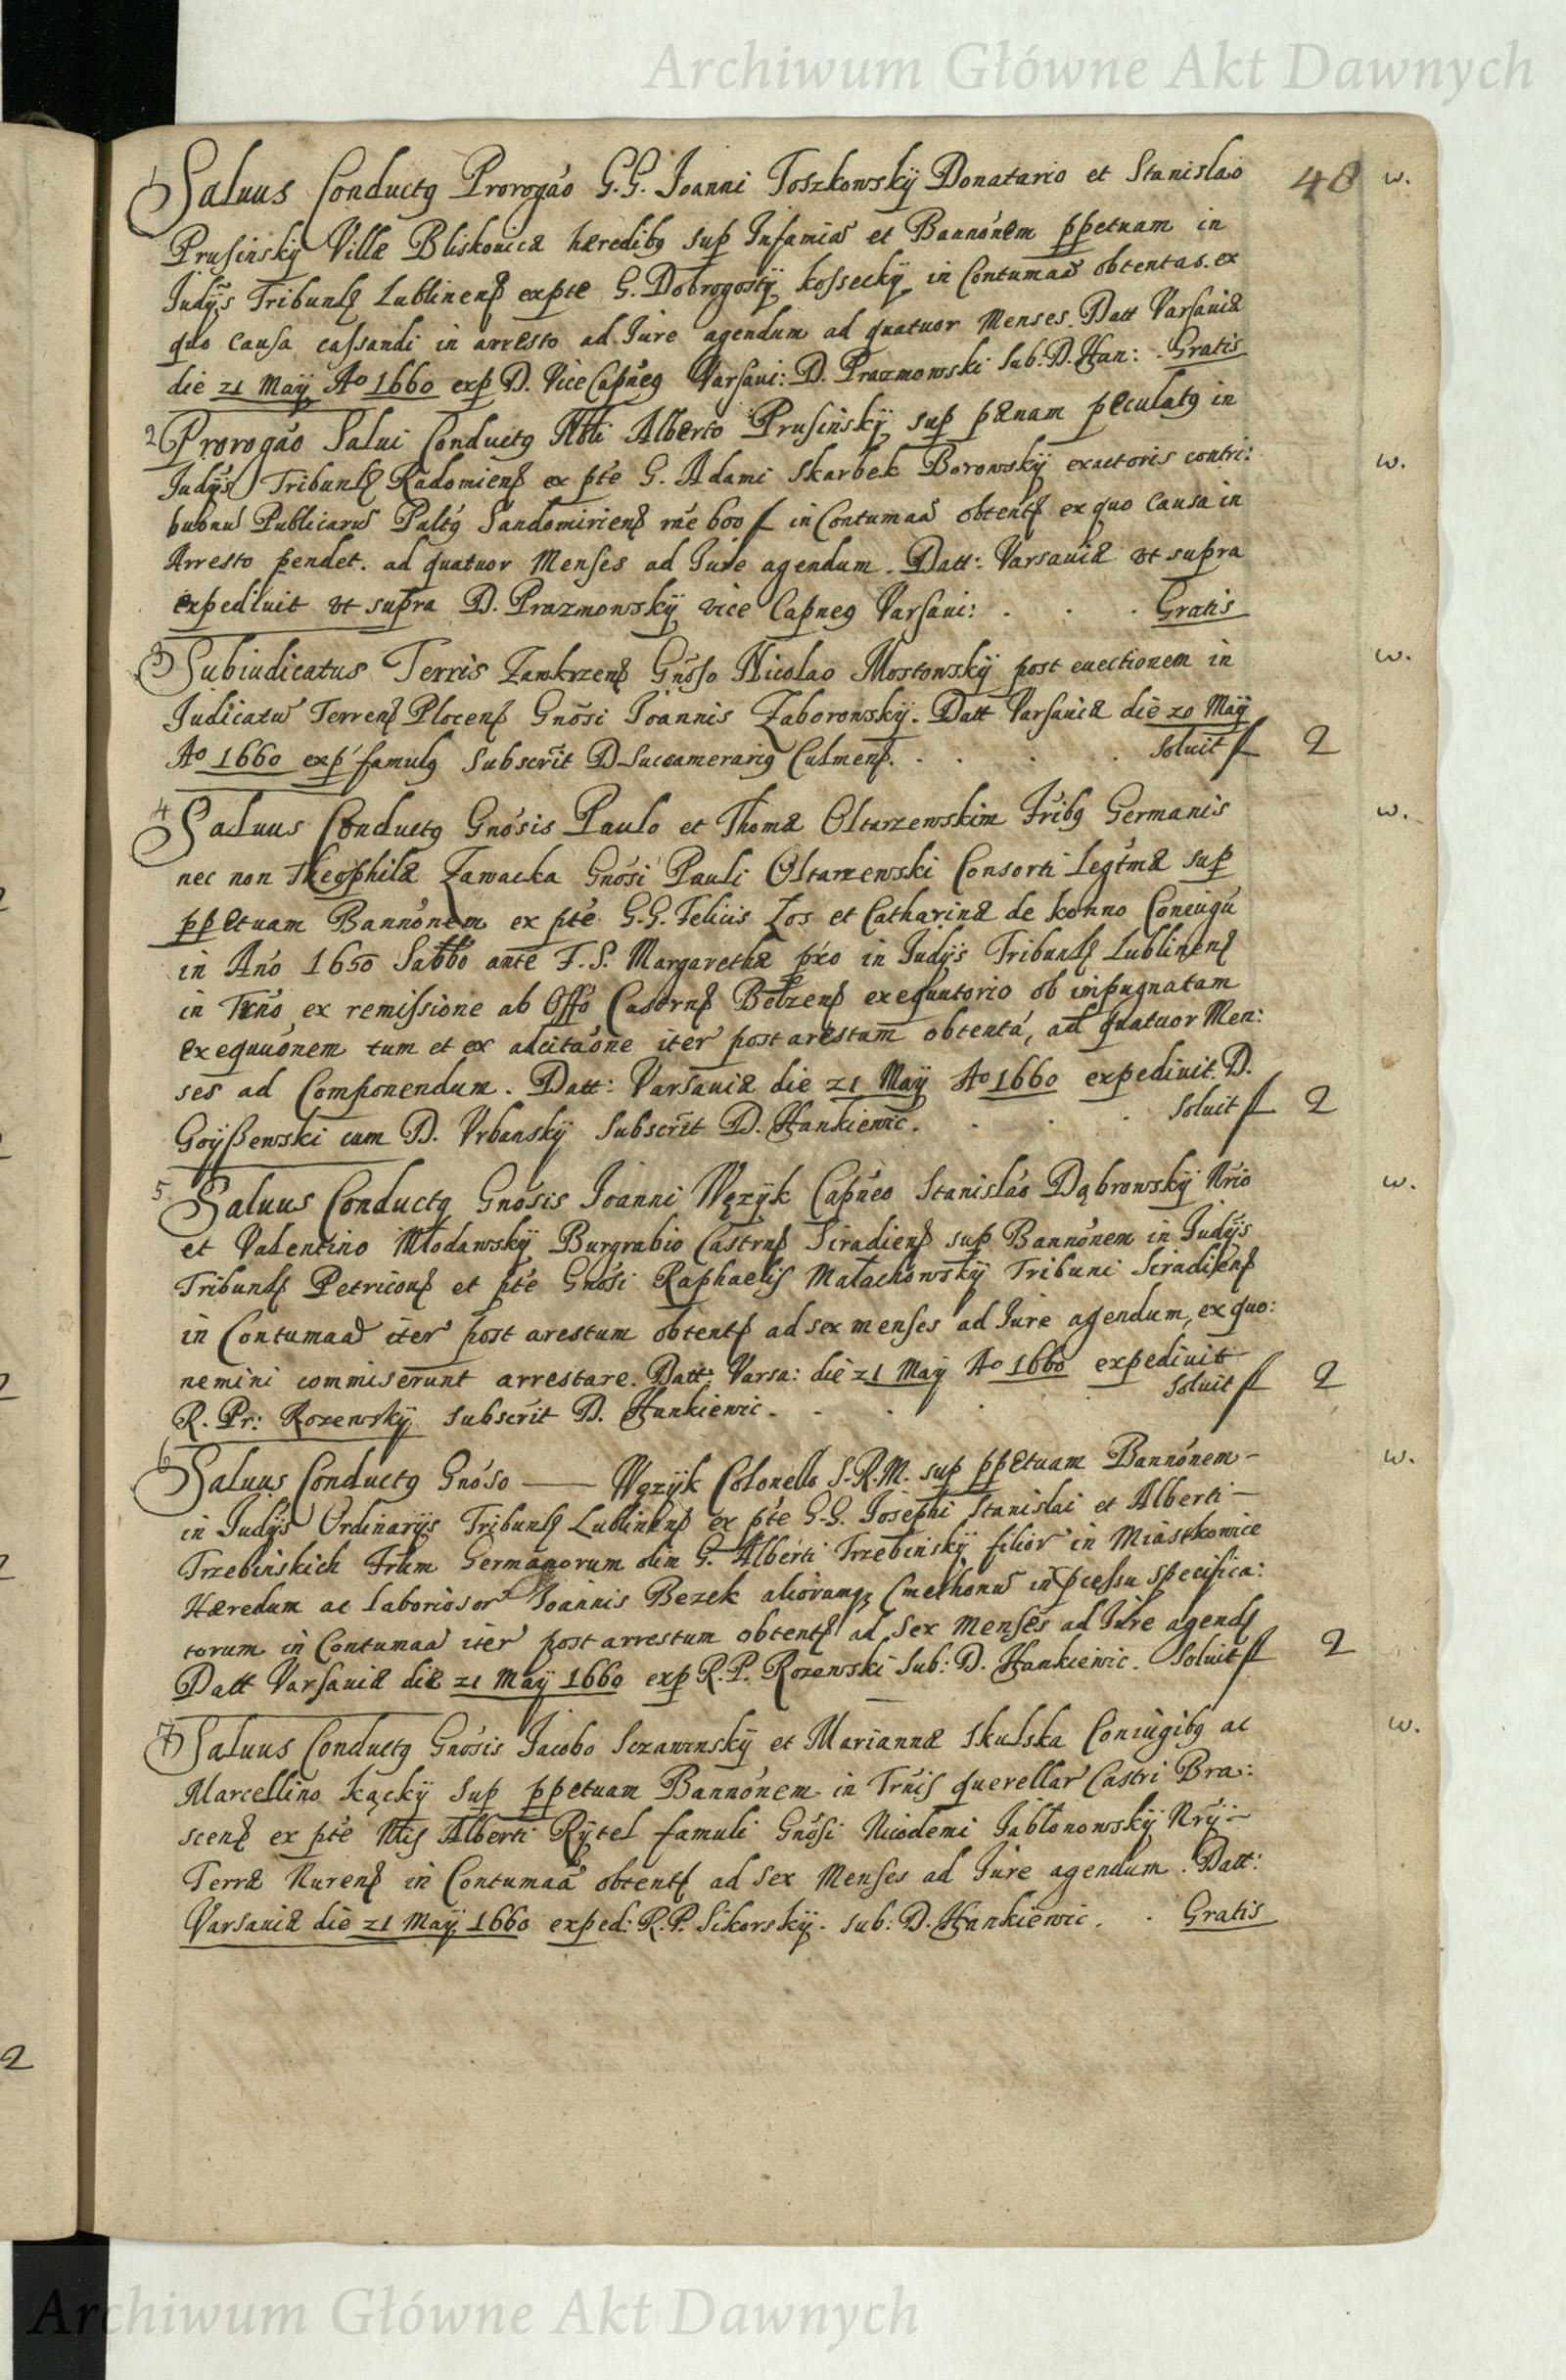 Archiwum Główne Akt Dawnych
48
1 Saluus Conductq Prorogāo G.G. Joanni Toszkowskÿ Donatario et Stanislao w.
Prusinskÿ Villæ Bliskouicæ hæredibq sup Infamia et Bannōnem ppetuam in
Judÿs Tribunlȩ Lublinenȩ ex pte G. Dobrogostÿ kosseckÿ in Contumaa obtentas. ex
quo causa cassandi in arresto ad Jure agendum ad quatuor Menses. Datt Varsauiæ
die 21 Maÿ Ao 1660 exp D. Vice Capneq Varsaui: D. Prazmowski Sub: D. Han: . Gratis
2 Prorogāo Salui Conductq Nbli Alberto Prusinskÿ sup pænam peculatq in
Judÿs Tribunlȩ Radomienȩ ex pte G. Adami Skarbek Borowskÿ exactoris contri: w.
bubonu Publicaru Paltq Sandomirienȩ rne 600 f in Contumaa obtentȩ ex quo Causa in
Arresto pendet. ad quatuor Menses ad Jure agendum. Datt: Varsauiæ vt supra
expediuit vt supra D. Prazmowskÿ vice Capneq Varsaui: . . . Gratis
3 Subiudicatus Terris Zawkrzenȩ Gnoso Nicolao Mostowskÿ post euectionem in w.
Judicatu Terrenȩ Plocenȩ Gnosi Joannis Zaborowskÿ. Datt Varsauiæ die 20 Maÿ
Ao 1660 exp famulq Subscrit D Succamerariq Culmenȩ. . . . . Soluit f 2
4 Saluus Conductq Gnosis Paulo et Thomæ Oltarzewskim Fribq Germanis w.
nec non Theophilæ Zawacka Gnosi Pauli Oltarzewski Consorti Legtmæ sup
ppetuam Bannōnem ex pte G.G. Felicis Zos et Catharinæ de konno Coniugu
in Ano 1650 Sabbo ante F. S. Margarethæ pxo in Judÿs Tribunlȩ Lublinenȩ
in Trno ex remissione ab Offo Castrnȩ Belzenȩ exequutorio ob inpugnatam
exequuōnem tum et ex adcitaōne iter post arestum obtenta, ad quatuor Men:
ses ad Componendum. Datt: Varsauiæ die 21 Maÿ Ao 1660 expediuit. D.
Goÿßewski cum D. Vrbanskÿ Subscrit D. Hankiewic. . . . Soluit f 2
5 Saluus Conductq Gnosis Joanni Wȩzÿk Capneo Stanislao Dąbrowskÿ Nrio w.
et Valentino Młodawskÿ Burgrabio Castrnȩ Siradienȩ sup Bannōnem in Judÿs
Tribunlȩ Petricouȩ et pte Gnosi Raphaelis Małachowskÿ Tribuni Siradienȩ
in Contumaa iter post arestum obtentȩ ad sex menses ad Jure agendum, ex quo:
nemini commiserunt arrestare. Datt: Varsa: die 21 Maÿ Ao 1660 expediuit
R. Pr: Rozewskÿ subscrit D. Hankiewic. . . . Soluit f 2
6 Saluus Conductq Gnoso — Wȩzÿk Colonello S.R.M. sup ppetuam Bannōnem – w.
in Judÿs Ordinarÿs Tribunlȩ Lublinenȩ ex pte G.G. Josephi Stanislai et Alberti –
Trzebinskich Frum Germanorum olim G. Alberti Trzebinskÿ filior in Miastkowice
Hæredum ac Laboriosor Joannis Bezek aliorumqȝ Cmethonu in pcessu specifica:
torum in Contumaa iter post arrestum obtentȩ ad Sex Menses ad Jure agendȩ
Datt Varsauiæ die 21 Maÿ 1660 exp R. P. Rozewski Sub: D. Hankiewic. Soluit f 2
7 Saluus Conductq Gnosis Jacobo Sczawinskÿ et Mariannæ Skulska Coniugibq ac w.
Marcellino Kąckÿ sup ppetuam Bannōnem in Trnis querellar Castri Bra:
scenȩ ex pte Nlis Alberti Rÿtel famuli Gnosi Nicodemi Jabłonowskÿ Nrÿ –
Terræ Nurenȩ in Contumaa obtentȩ ad Sex Menses ad Jure agendum. Datt:
Varsauiæ die 21 Maÿ 1660 exped: R. P. Sikorskÿ. sub: D. Hankiewic. . Gratis
2
Archiwum Główne Akt Dawnych